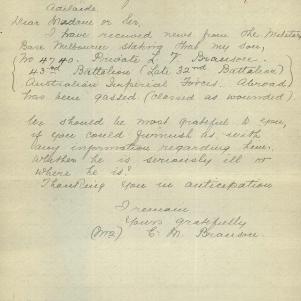 Adelaide
Dear Madam or Sir,
I have received news from the Military
Base Melbourne stating that my son,
(No 4740. Private L. T. Branson.
43rd Battalion (Late 32nd Battalion)
Australian Imperial Force. Abroad
has been gassed (classed as wounded)
We should be most grateful to you,
if you could furnish us with
any information regarding him.
Whether he is seriously ill or
where he is?
Thanking you in anticipation
I remain
Yours gratefully
(Mrs) C. M. Branson.